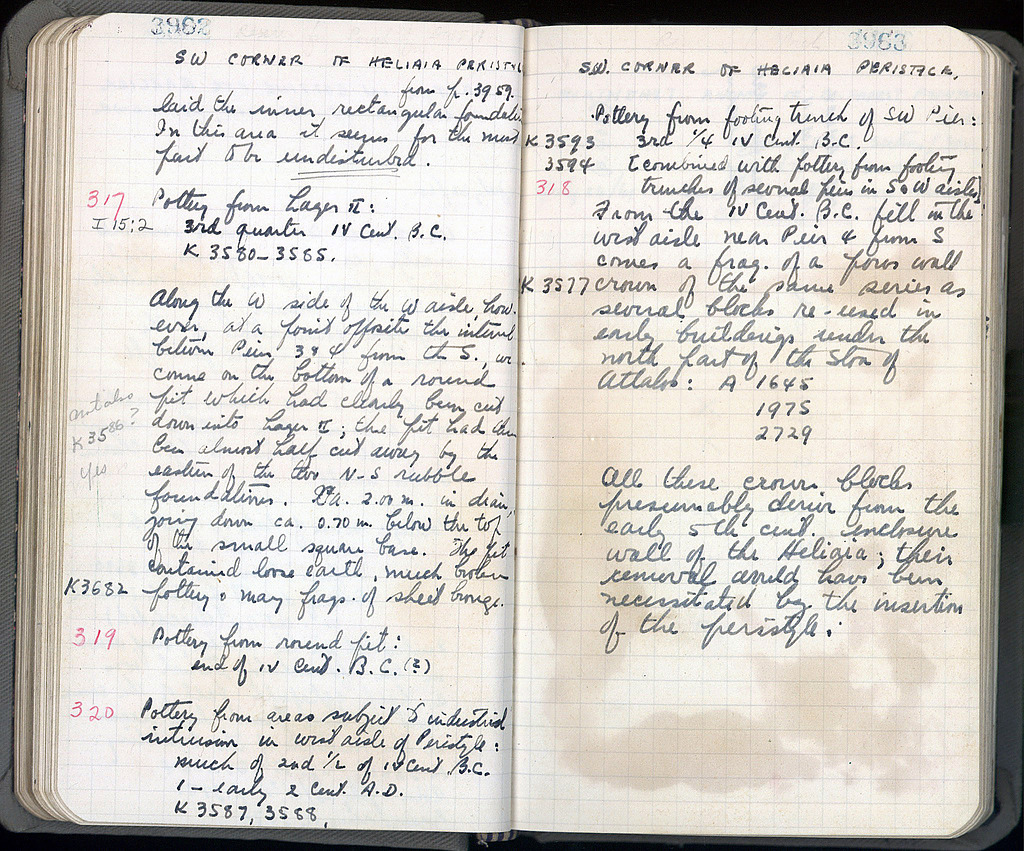 3962
SW CORNER OF HELIAIA PERISTYLE
from p. 3959.
laid the inner rectangular foundation
In this area it seems for the most
part to be undisturbed.
317 Pottery from Layer II:
I 15:2 3rd quarter IV Cent. B.C.
K 3580-3585.
Along the W side of the W aisle, how-
ever, at a point opposite the interval
between Piers 3 & 4 from the S, we
come on the bottom of a round
pit which had clearly been cut
and also
down into Layer II; the pit had then
K 3586?
been almost half cut away by the
yes
eastern of the two N-S rubble
foundations. Pit ca. 2.00 m. in diam,
going down ca. 0.70 m. below the top
of the small square base. The pit
contained loose earth, much broken
K3682 pottery & many frags. of sheet bronze.
319 Pottery from round pit:
end of IV Cent. B.C. (?)
320 Pottery from areas subject to industrial
intrusion in west aisle of Peristyle:
much of 2nd 1/2 of IV Cent. B.C.
1 - early 2 Cent. A.D.
K 3587, 3588,
3963
SW. CORNER OF HELIAIA PERISTYLE.
Pottery from footing trench of SW Pier:
K 3593 3rd 1/4 IV Cent. B.C.
3594 [combined with pottery from footing
318 trenches of several piers in S & W aisles]
From the IV Cent. B.C. fill in the
west aisle near Pier 4 from S
comes a frag. of a poros wall
K 3577 crown of the same series as
several blocks re-used in
early buildings under the
north part of the Stoa of
Attalos: A 1645
1975
2729
All these crown blocks
presumably derive from the
early 5th cent. enclosure
wall of the Heliaia; their
removal would have been
necessitated by the insertion
of the peristyle.